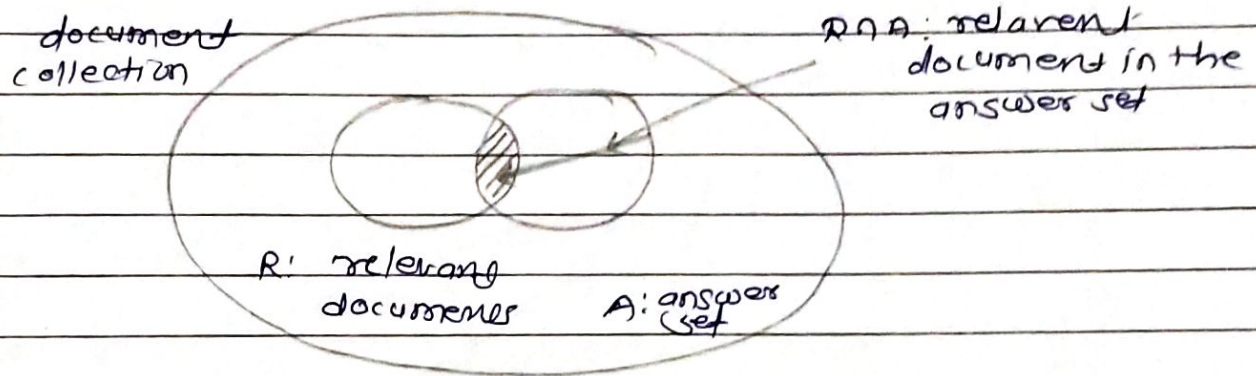 document
collection
R∩A: relarent
document in the
answer set
R: relevang
documenes
A: answer
set